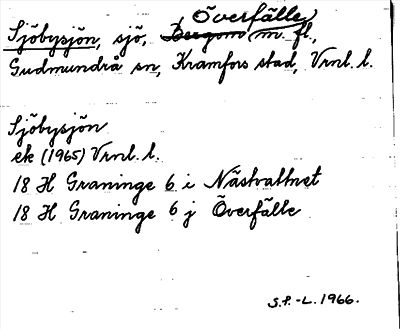 Sjöbysjön, sjö, Överfälle, m. fl.,
Gudmundrå sn, Kramfors stad, Vrnl. l.
Sjöbysjön
ek (1965) Vrnl. l.
18 H Graninge 6 i Nästvattnet
18 H Graninge 6 j Överfälle
S.P.-L. 1966.